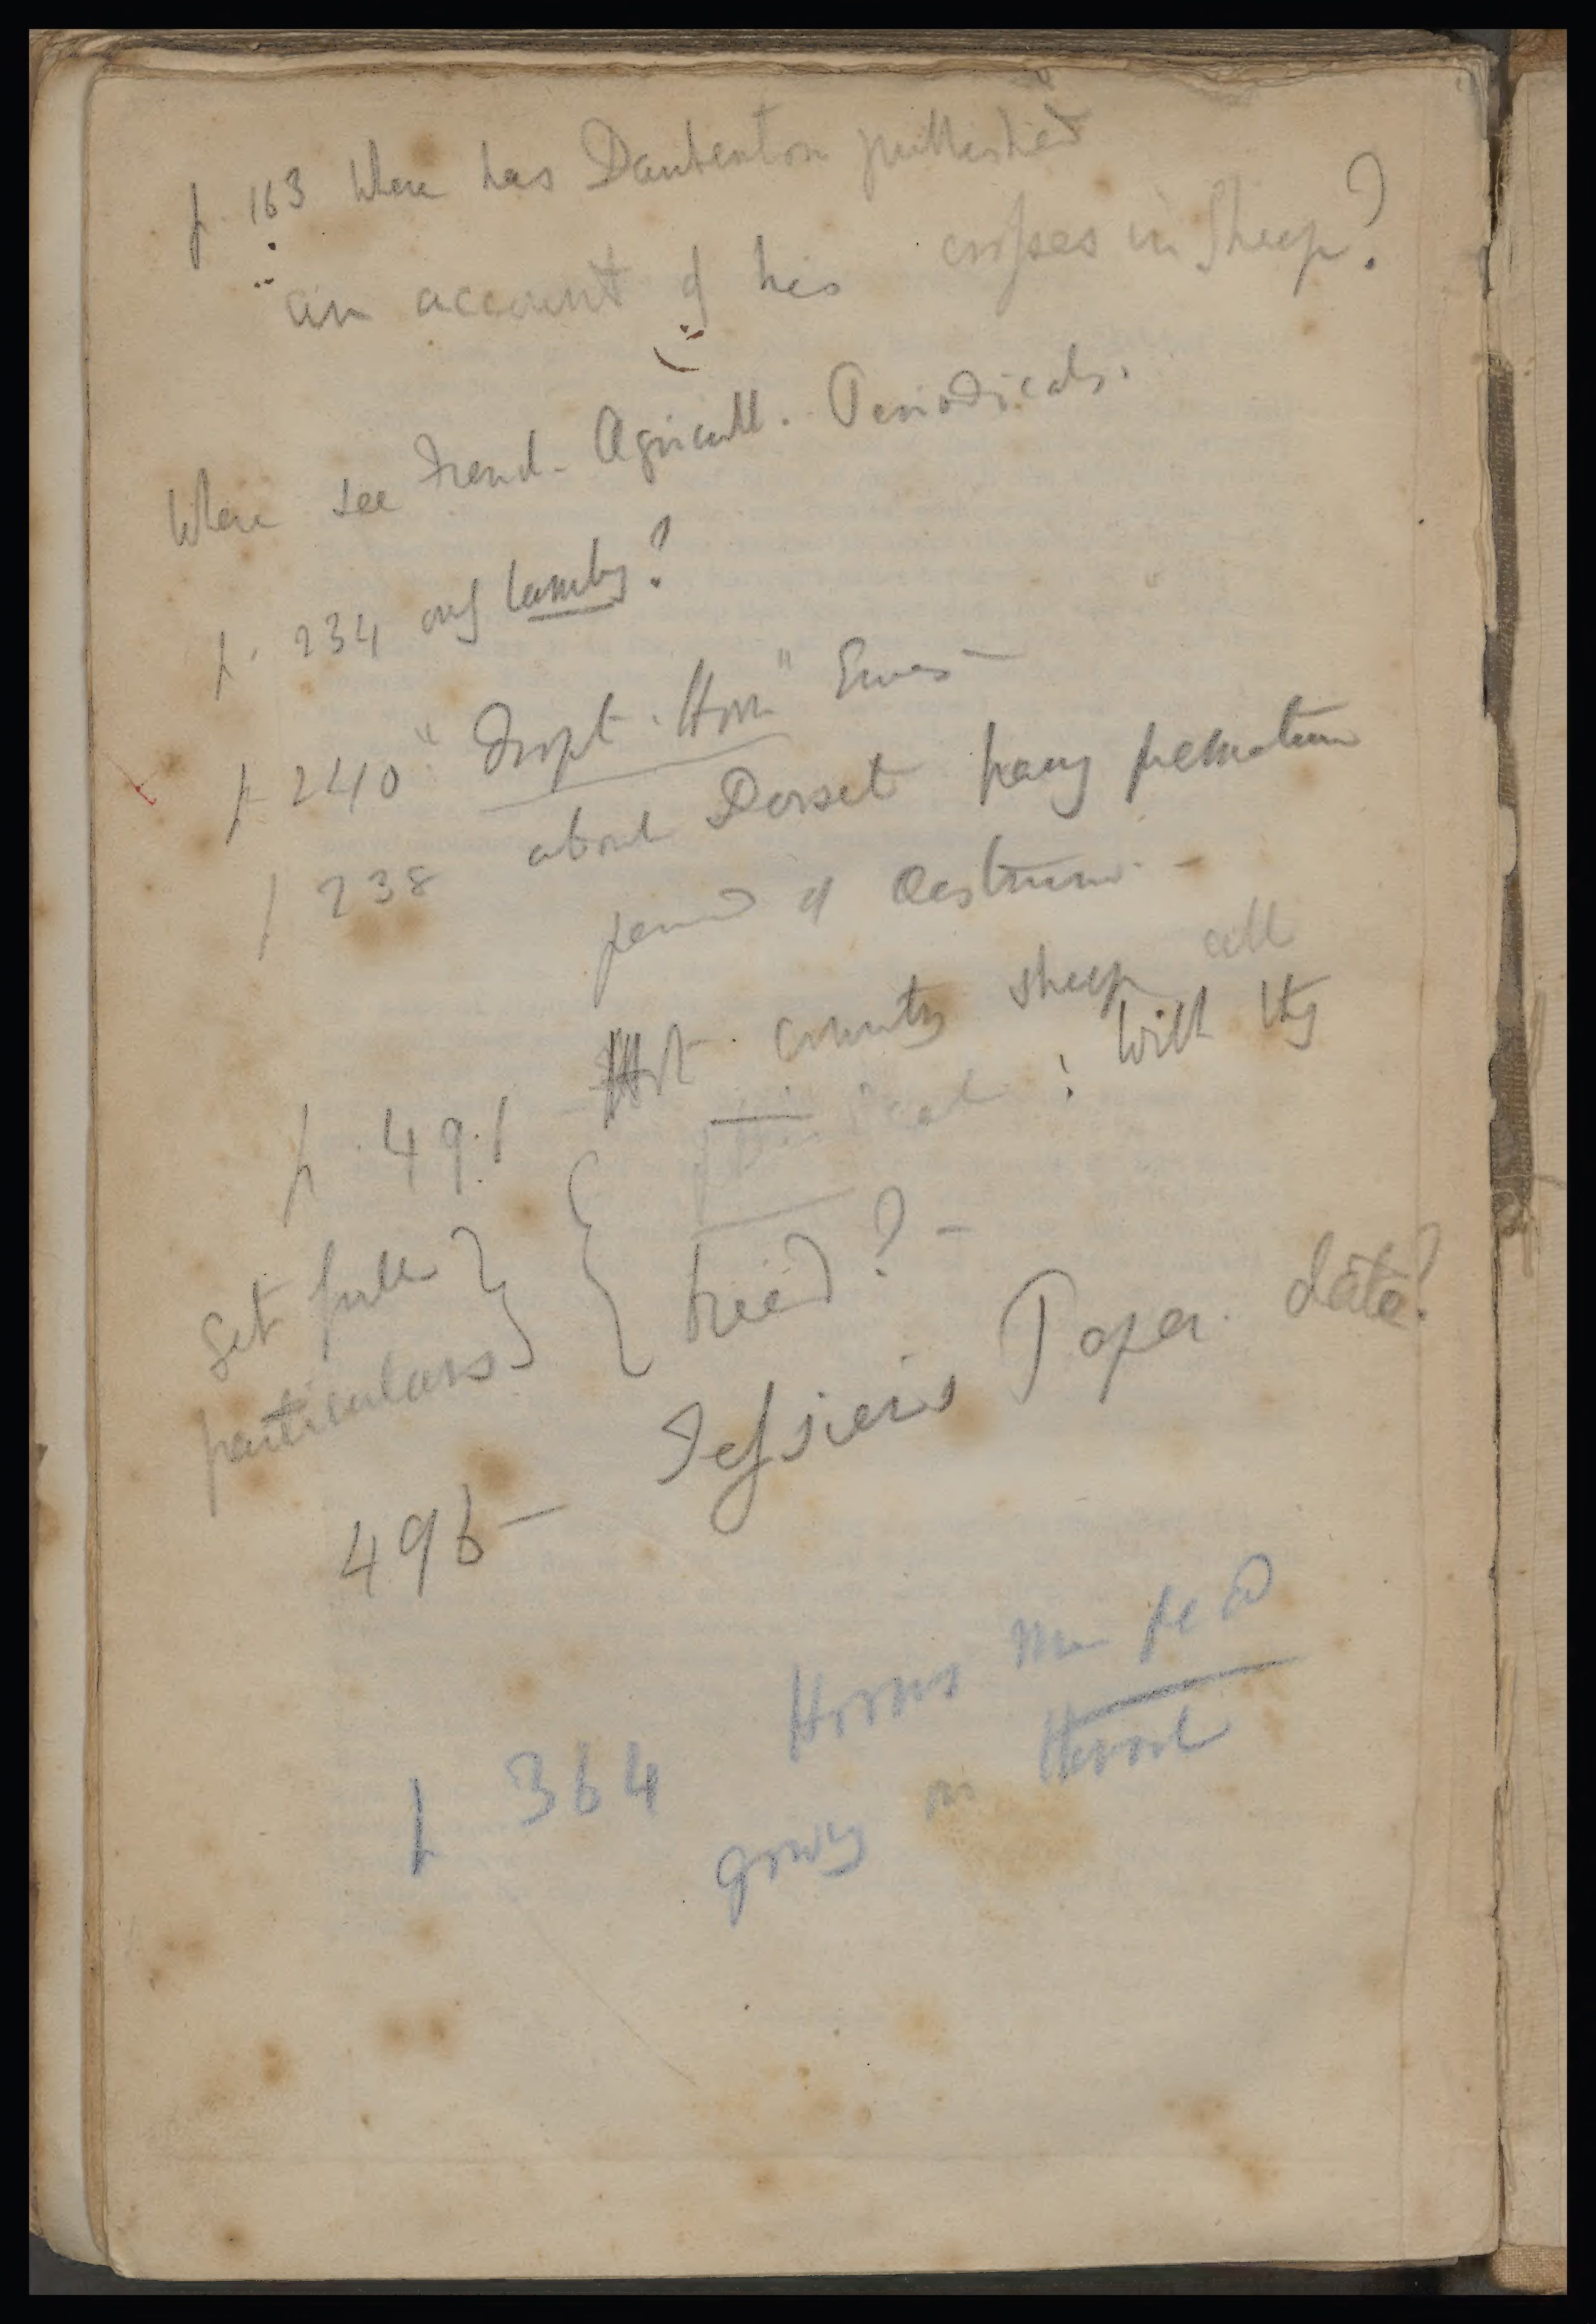 p. 163 Where has Daubenton published
an account of his crosses in Sheep?
Where see French Agricult. Periodicals.
p. 234 only lambs?
p 240 "Dropt-Horn" Ewes —
p 238 about Dorset having premature
period of Oestrum —
p. 491 Hot country sheep all
: Will they
Get full
breed? —
particulars
496 — Tessier's Paper date?
p 364 Horns
growing in Hered